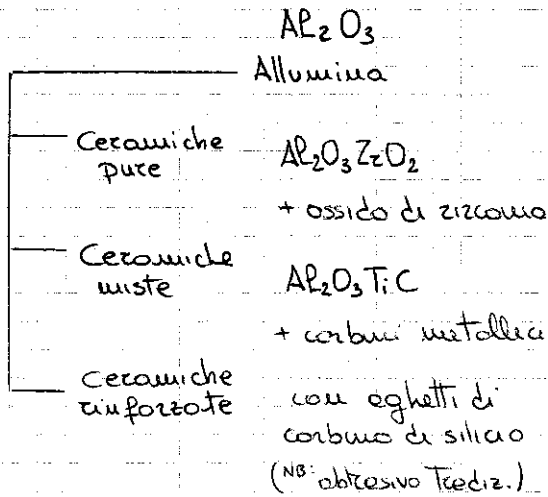 Al₂O₃
Allumina
Ceramiche pure
Al₂O₃ZrO₂
+ ossido di zirconio
Ceramiche miste
Al₂O₃TiC
+ carburi metallici
Ceramiche rinforzate
con aghetti di
carburo di silicio
(NB: abrasivo Tradiz.)